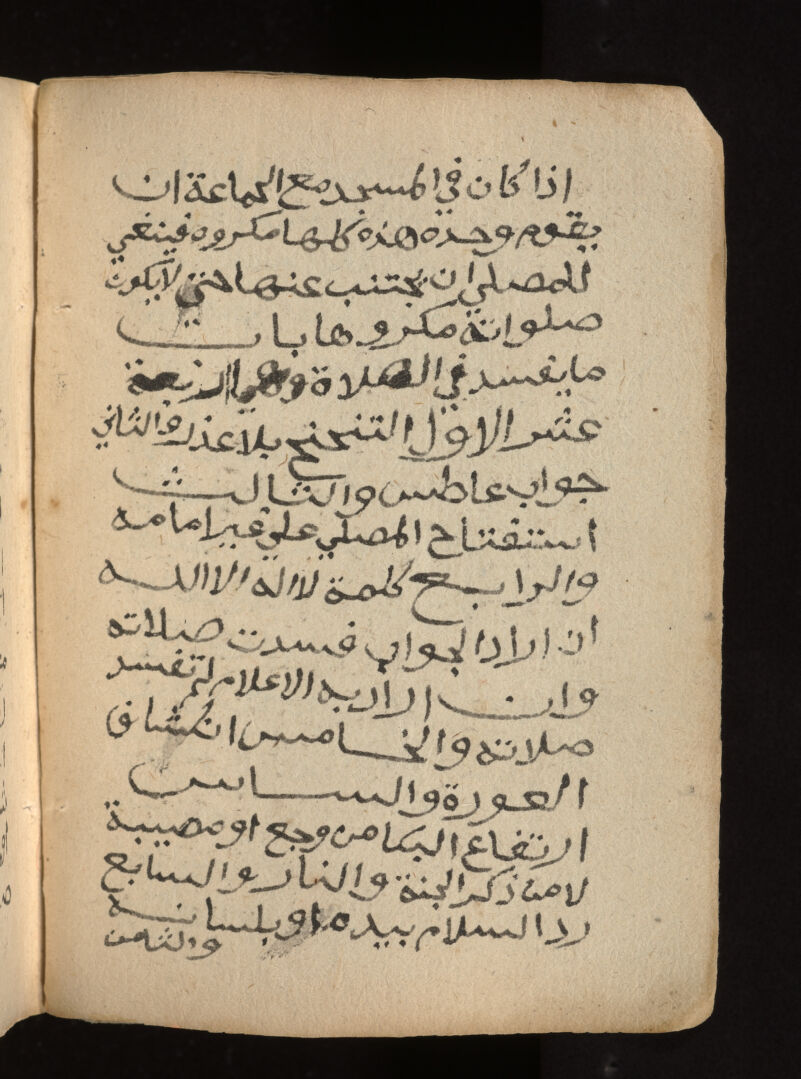 اذا كان في المسجد مع الجماعة ان
يقوم وحده هذه كلها مكروه فينبغي
للمصلي ان يجتنب عنها حتى لا يكون
صلواته مكروها باب
ما يفسد في الصلاة وهي اربعة
عشر الاول التنحنح بلا عذر والثاني
جواب عاطس والثالث
استفتاح المصلي على غير امامه
والرابع كلمة لا اله الا الله
ان اراد الجواب فسدت صلاته
وان اراد به الاعلام لم تفسد
صلاته والخامس انكشاف
العورة والساس
ارتفاع البكا من وجع او مصيبة
لا من ذكر الجنة والنار والسابع
رد السلام بيده او بلسانه
والثامن